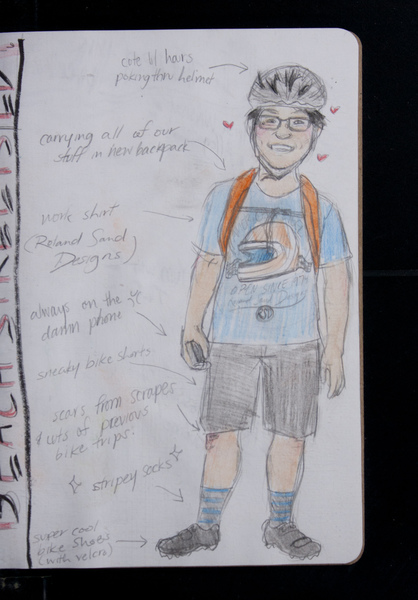 cute lil hairs
poking thru helmet
carrying all of our
stuff in her backpack
work shirt
(Roland Sand
Designs)
always on the
damn phone
sneaky bike shorts
scars from scrapes
& cuts of previous
bike trips!
stripey socks
super cool
bike shoes
(with velcro)
OPEN SINCE
BEACH STREETS